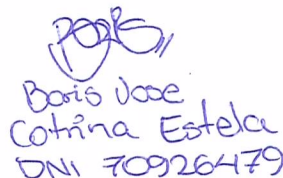 Boris
Boris Jose
Cotrina Estela
DNI 70926479